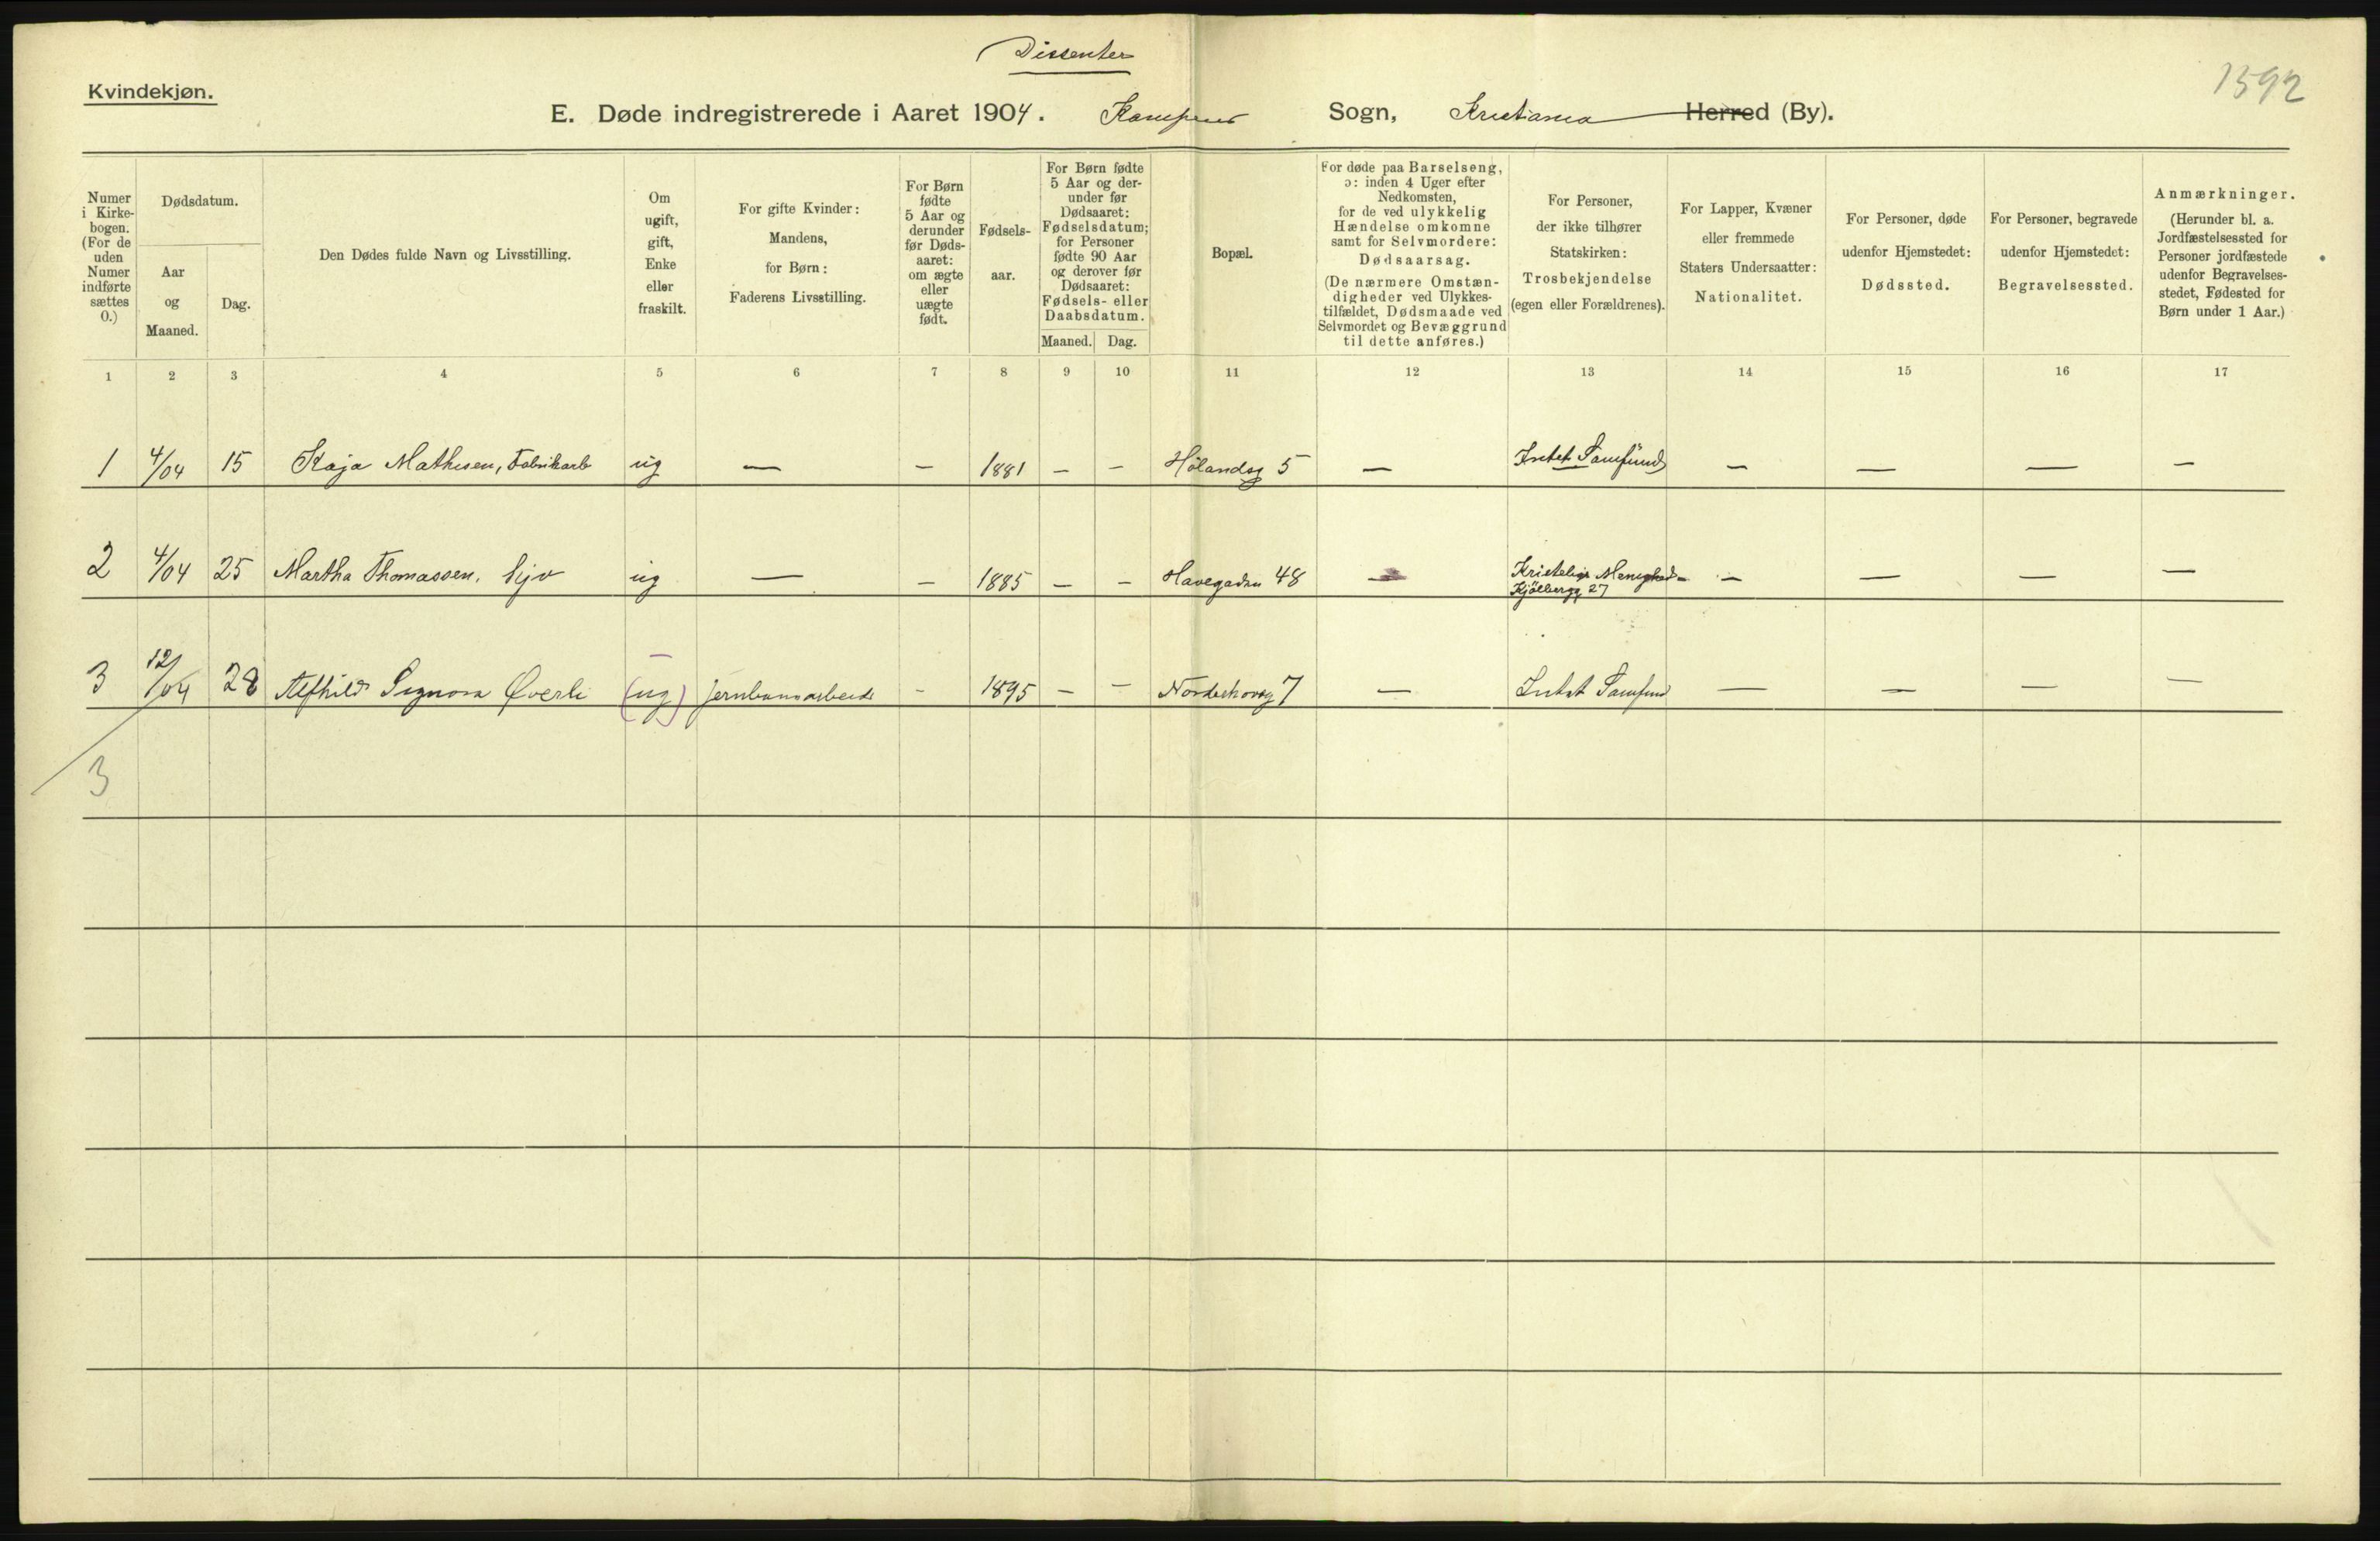 Dissenter
1592
Kvindekjøn.
E. Døde indregistrerede i Aaret 1904. Kampens Sogn, Kristiania Herred (By).
Numer i Kirke-bogen. (For de uden Numer indførte sættes 0.)
Dødsdatum.
Aar og Maaned.
Dag.
Den Dødes fulde Navn og Livsstilling.
Om ugift, gift, Enke eller fraskilt.
For gifte Kvinder: Mandens, for Børn: Faderens Livsstilling.
For Børn fødte 5 Aar og derunder før Døds-aaret: om ægte eller uægte født.
Fødsels-aar.
For Børn fødte 5 Aar og der-under før Dødsaaret: Fødselsdatum; for Personer fødte 90 Aar og derover før Dødsaaret: Fødsels- eller Daabsdatum.
Maaned. Dag.
Bopæl.
For døde paa Barselseng, ɔ: inden 4 Uger efter Nedkomsten, for de ved ulykkelig Hændelse omkomne samt for Selvmordere: Dødsaarsag. (De nærmere Omstæn-digheder ved Ulykkes-tilfældet, Dødsmaade ved Selvmordet og Bevæggrund til dette anføres.)
For Personer, der ikke tilhører Statskirken: Trosbekjendelse (egen eller Forældrenes).
For Lapper, Kvæner eller fremmede Staters Undersaatter: Nationalitet.
For Personer, døde udenfor Hjemstedet: Dødssted.
For Personer, begravede udenfor Hjemstedet: Begravelsessted.
Anmærkninger. (Herunder bl. a. Jordfæstelsessted for Personer jordfæstede udenfor Begravelses-stedet, Fødested for Børn under 1 Aar.)
1 2 3 4 5 6 7 8 9 10 11 12 13 14 15 16 17
1 4/04 15 Kaja Mathisen, Fabrikarb ug — — 1881 — — Hölandsg 5 — Intet Samfund — — — —
2 4/04 25 Martha Thomassen, Syv ug — — 1885 — — Havegaden 48 — Kristelige Menighed — — — — —
Kjölbergg 27
3 12/04 28 Alfhild Signora Øverli (ug) — Jernbanearbeid — 1895 — — Norderhovsg 7 — Intet Samfund — — — —
3